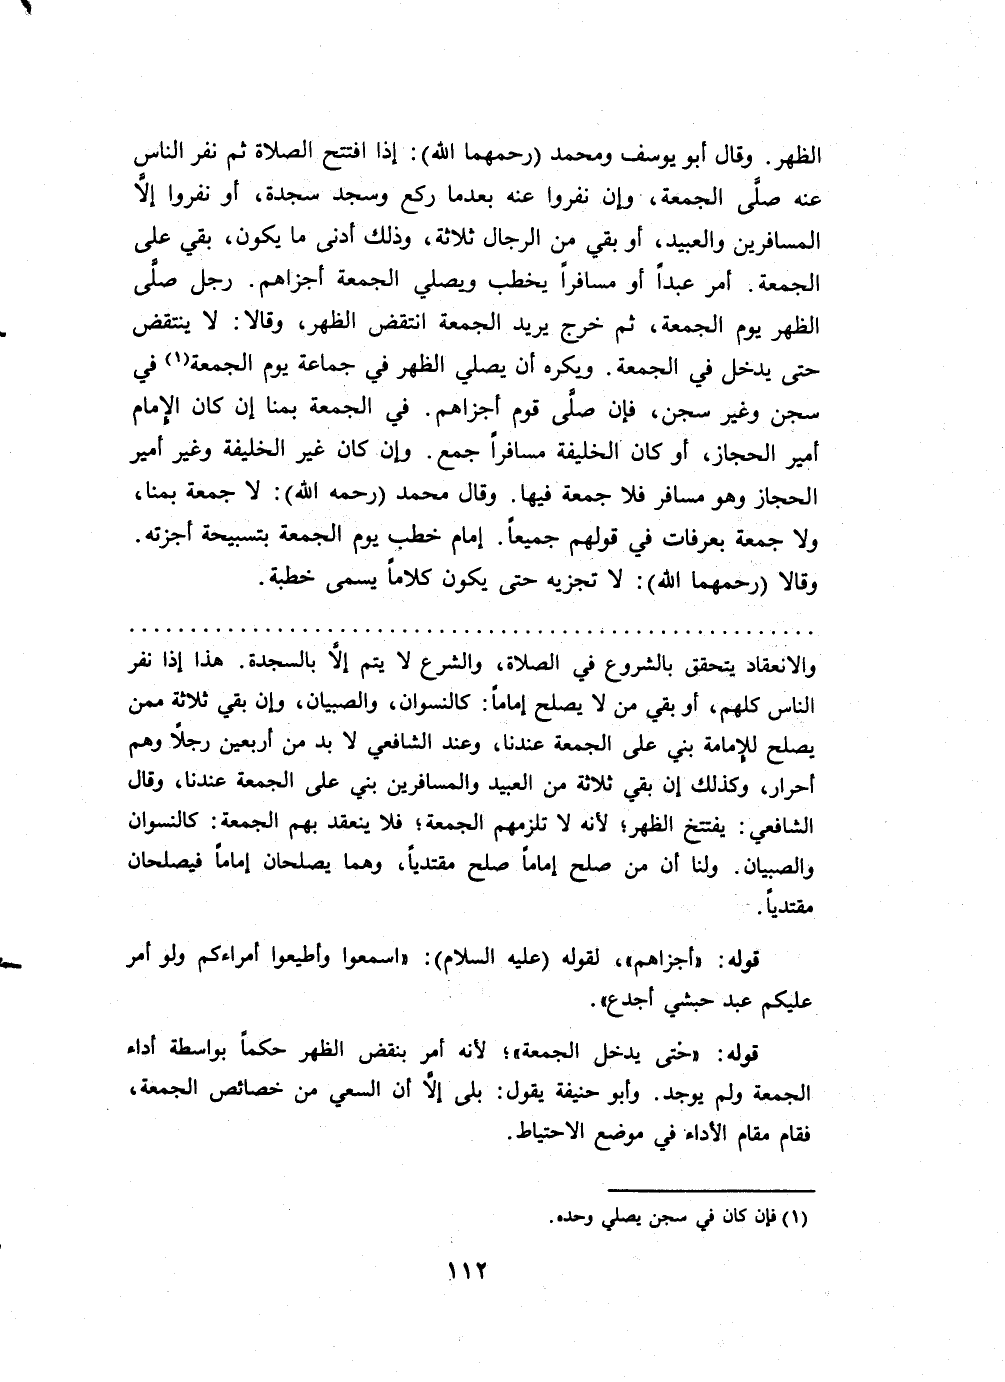 الظهر. وقال أبو يوسف ومحمد (رحمهما الله): إذا افتتح الصلاة ثم نفر الناس
عنه صلَّى الجمعة، وإن نفروا عنه بعدما ركع وسجد سجدة، أو نفروا إلَّا
المسافرين والعبيد، أو بقي من الرجال ثلاثة، وذلك أدنى ما يكون، بقي على
الجمعة. أمر عبداً أو مسافراً يخطب ويصلي الجمعة أجزاهم. رجل صلَّى
الظهر يوم الجمعة، ثم خرج يريد الجمعة انتقض الظهر، وقالا: لا ينتقض
حتى يدخل في الجمعة. ويكره أن يصلي الظهر في جماعة يوم الجمعة(١) في
سجن وغير سجن، فإن صلَّى قوم أجزاهم. في الجمعة بمنا إن كان الإمام
أمير الحجاز، أو كان الخليفة مسافراً جمع. وإن كان غير الخليفة وغير أمير
الحجاز وهو مسافر فلا جمعة فيها. وقال محمد (رحمه الله): لا جمعة بمنا،
ولا جمعة بعرفات في قولهم جميعاً. إمام خطب يوم الجمعة بتسبيحة أجزته.
وقالا (رحمهما الله): لا تجزيه حتى يكون كلاماً يسمى خطبة.
والانعقاد يتحقق بالشروع في الصلاة، والشرع لا يتم إلَّا بالسجدة. هذا إذا نفر
الناس كلهم، أو بقي من لا يصلح إماماً: كالنسوان، والصبيان، وإن بقي ثلاثة ممن
يصلح للإمامة بني على الجمعة عندنا، وعند الشافعي لا بد من أربعين رجلاً وهم
أحرار، وكذلك إن بقي ثلاثة من العبيد والمسافرين بني على الجمعة عندنا، وقال
الشافعي: يفتتخ الظهر؛ لأنه لا تلزمهم الجمعة؛ فلا ينعقد بهم الجمعة: كالنسوان
والصبيان. ولنا أن من صلح إماماً صلح مقتدياً، وهما يصلحان إماماً فيصلحان
مقتدياً.
قوله: «أجزاهم»، لقوله (عليه السلام): «اسمعوا وأطيعوا أمراءكم ولو أمر
عليكم عبد حبشي أجدع».
قوله: «حْتى يدخل الجمعة»؛ لأنه أمر بنقض الظهر حكماً بواسطة أداء
الجمعة ولم يوجد. وأبو حنيفة يقول: بلى إلَّا أن السعي من خصائص الجمعة،
فقام مقام الأداء في موضع الاحتياط.
(١) فإن كان في سجن يصلي وحده.
١١٢